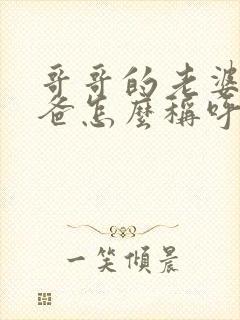 哥哥的老婆
爸怎麼稱呼
一笑傾晨